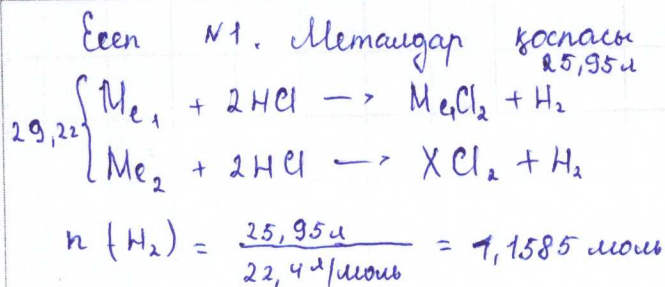 Есеп №1. Металдар қоспасы
25,95л
29,22 { Me₁ + 2HCl —> Me₁Cl₂ + H₂
Me₂ + 2HCl —> XCl₂ + H₂
n (H₂) = 25,95л / 22,4 л/моль = 1,1585 моль